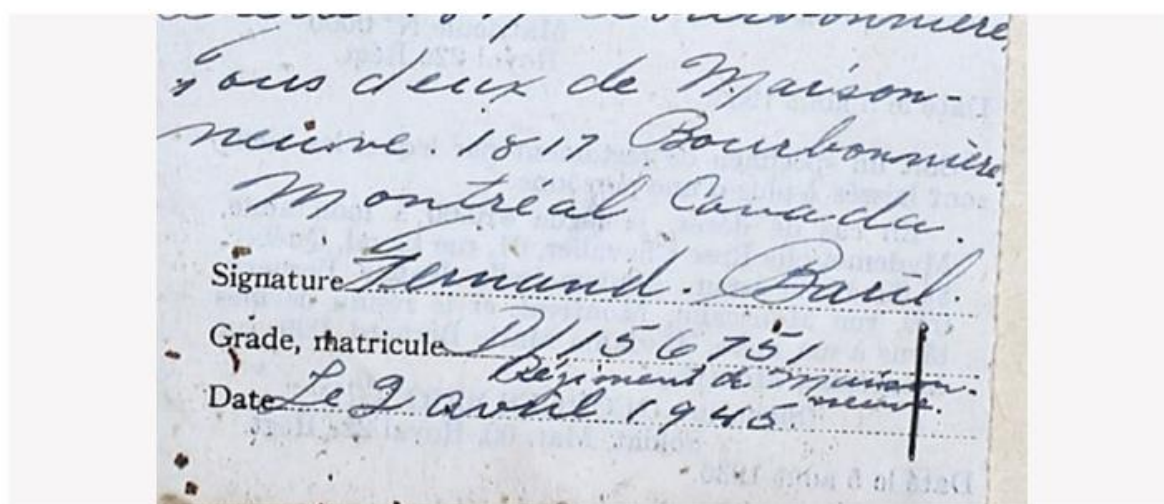 1817 Bourbonnière,
tous deux de Maison-
neuve. 1817 Bourbonnière.
Montréal Canada.
Signature Fernand. Baril.
Grade, matricule D/156751
Régiment de Maison-
neuve.
Date Le 2 avril 1945.